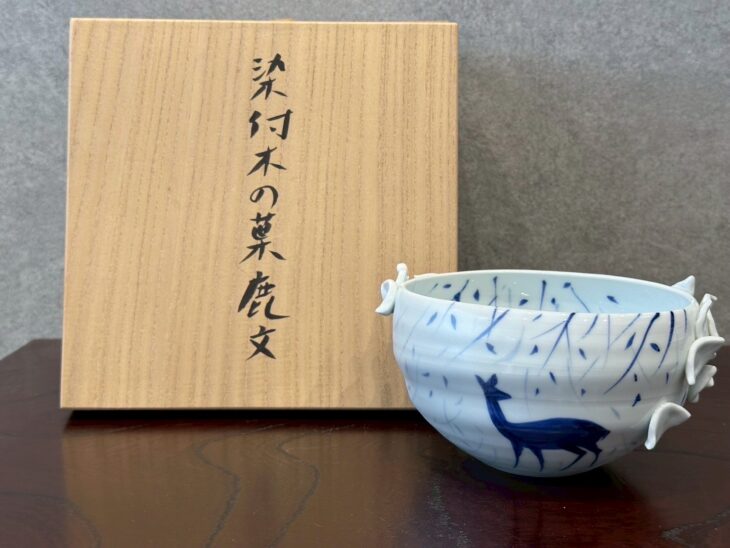 染付木の菓鹿文